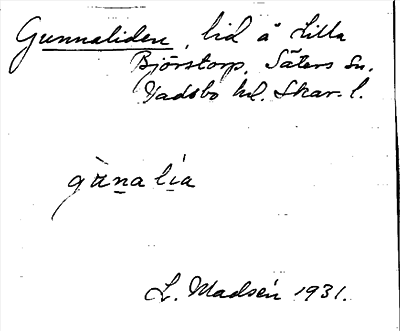 Gunnaliden, lid å Lilla
Björstorp, Säters sn.
Vadsbo hd. Skar. l.
gu̇na lia
L. Madsén 1931.